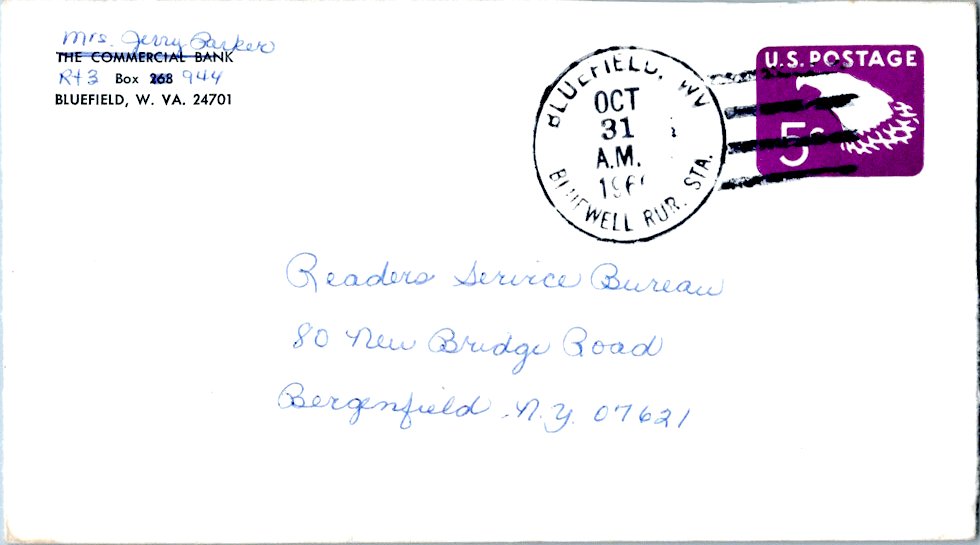 Mrs. Jerry Parker
THE COMMERCIAL BANK
Rt 3 Box 268 944
BLUEFIELD, W. VA. 24701
BLUEFIELD, WV
OCT
31
A.M.
BLUEWELL RUR. STA.
U.S. POSTAGE
5c
Readers Service Bureau
80 New Bridge Road
Bergenfield, N.Y. 07621